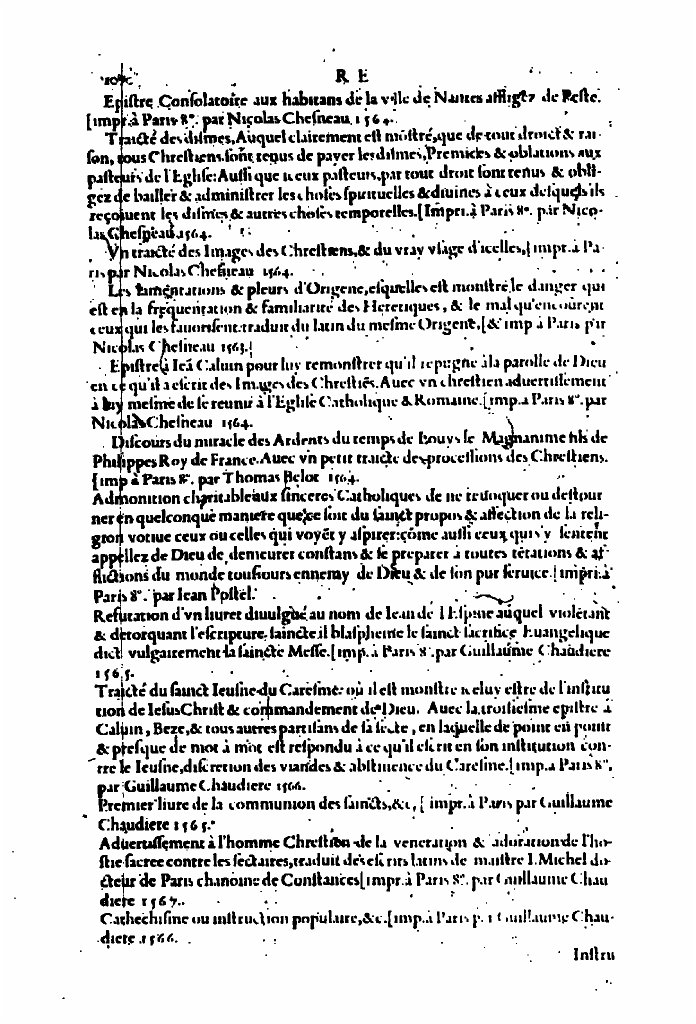 R E
Epistre Consolatoire aux habitans de la ville de Nantes affligez de Peste.
[impr.à Paris 8°. par Nicolas Chesneau. 1564.
Traicté des dismes, Auquel clairement est mõstré, que de tout droict & rai-
son, tous Chrestiens sont tenus de payer les dismes, Premices & oblations aux
pasteurs de l'Eglise: Aussi que iceux pasteurs, par tout droit sont tenus & obli-
gez de bailler & administrer les choses spirituelles & diuines à ceux desquels ils
reçoiuent les dismes & autres choses temporelles. [Impri.à Paris 8°. par Nico-
las Chesneau. 1564.
Vn traicté des Images des Chrestiens, & du vray vsage d'icelles, [impr.à Pa-
ris par Nicolas Chesneau 1564.
Les lamentations & pleurs d'Origene, esquelles est monstré le danger qui
est en la frequentation & familiarité des Heretiques, & le mal qu'encourent
ceux qui les fauorisent. traduit du latin du mesme Origene. [& imp à Paris par
Nicolas Chesneau 1563.]
Epistre à Ieã Caluin pour luy remonstrer qu'il repugne à la parolle de Dieu
en ce qu'il a escrit des Images des Chrestiẽs. Auec vn chrestien aduertissement
à luy mesme de se reunir à l'Eglise Catholique & Romaine. [imp.a Paris 8°. par
Nicolas Chesneau 1564.
Discours du miracle des Ardents du temps de Louys le Magnanime fils de
Philippes Roy de France. Auec vn petit traicte des processions des Chrestiens.
[imp à Paris 8°. par Thomas Belot 1564.
Admonition charitable aux sinceres Catholiques de ne reuoquer ou destour
ner en quelconque maniere que ce soit du sainct propos & affection de la reli-
gion votiue ceux ou celles qui voyẽt y aspirer: cõme aussi ceux quis'y sentent
appellez de Dieu de demeurer constans & se preparer à toutes tẽtations & af-
flictions du monde tousiours ennemy de Dieu & de son pur seruice. [impri.à
Paris 8°. par Iean Postel.
Refutation d'vn liuret diuulgué au nom de Iean de l'Espine auquel violétant
& detorquant l'escripture saincte, il blaspheme le sainct sacrifice Euangelique
dict vulgairement la saincte Messe. [imp.à Paris 8°. par Guillaume Chaudiere
1565.
Traicté du sainct Ieusne du Caresme: où il est monstre iceluy estre de l'institu
tion de Iesus Christ & commandement de Dieu. Auec la troisiesme epistre à
Caluin, Beze, & tous autres partisans de sa secte, en laquelle de point en point
& presque de mot à mot est respondu à ce qu'il escrit en son institution con-
tre le Ieusne, discretion des viandes & abstinence du Caresme. [imp.a Paris 8°.
par Guillaume Chaudiere 1566.
Premier liure de la communion des saincts, &c, [impr.à Paris par Guillaume
Chaudiere 1565.
Aduertissement à l'homme Chrestien de la veneration & adoration de l'ho-
stie sacree contre les sectaires, traduit des escrits latins de maistre I. Michel do-
cteur de Paris chanoine de Constances [impr.à Paris 8°. par Guillaume Chau
diere 1567.
Cathechisme ou instruction populaire, &c. [imp.à Paris Guillaume Chau-
diere 1566.
Instru